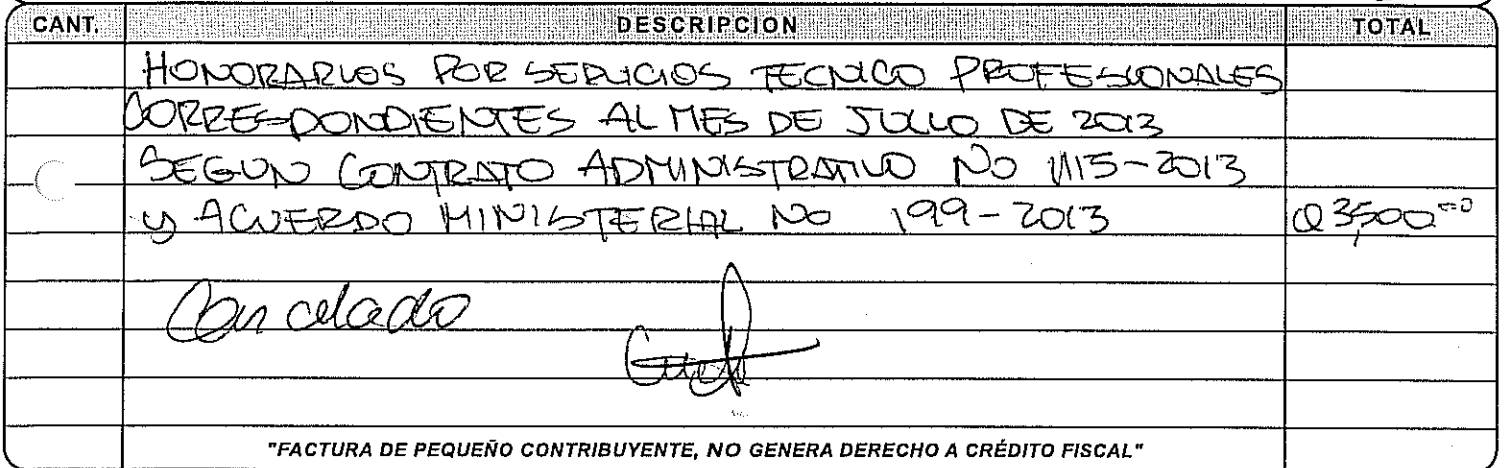 CANT. DESCRIPCION TOTAL
HONORARIOS POR SERVICIOS TECNICO PROFESIONALES
CORRESPONDIENTES AL MES DE JULIO DE 2013
SEGUN CONTRATO ADMINISTRATIVO No 1115-2013
y ACUERDO MINISTERIAL No 199-2013 Q3,500.00
Cancelado
"FACTURA DE PEQUEÑO CONTRIBUYENTE, NO GENERA DERECHO A CRÉDITO FISCAL"